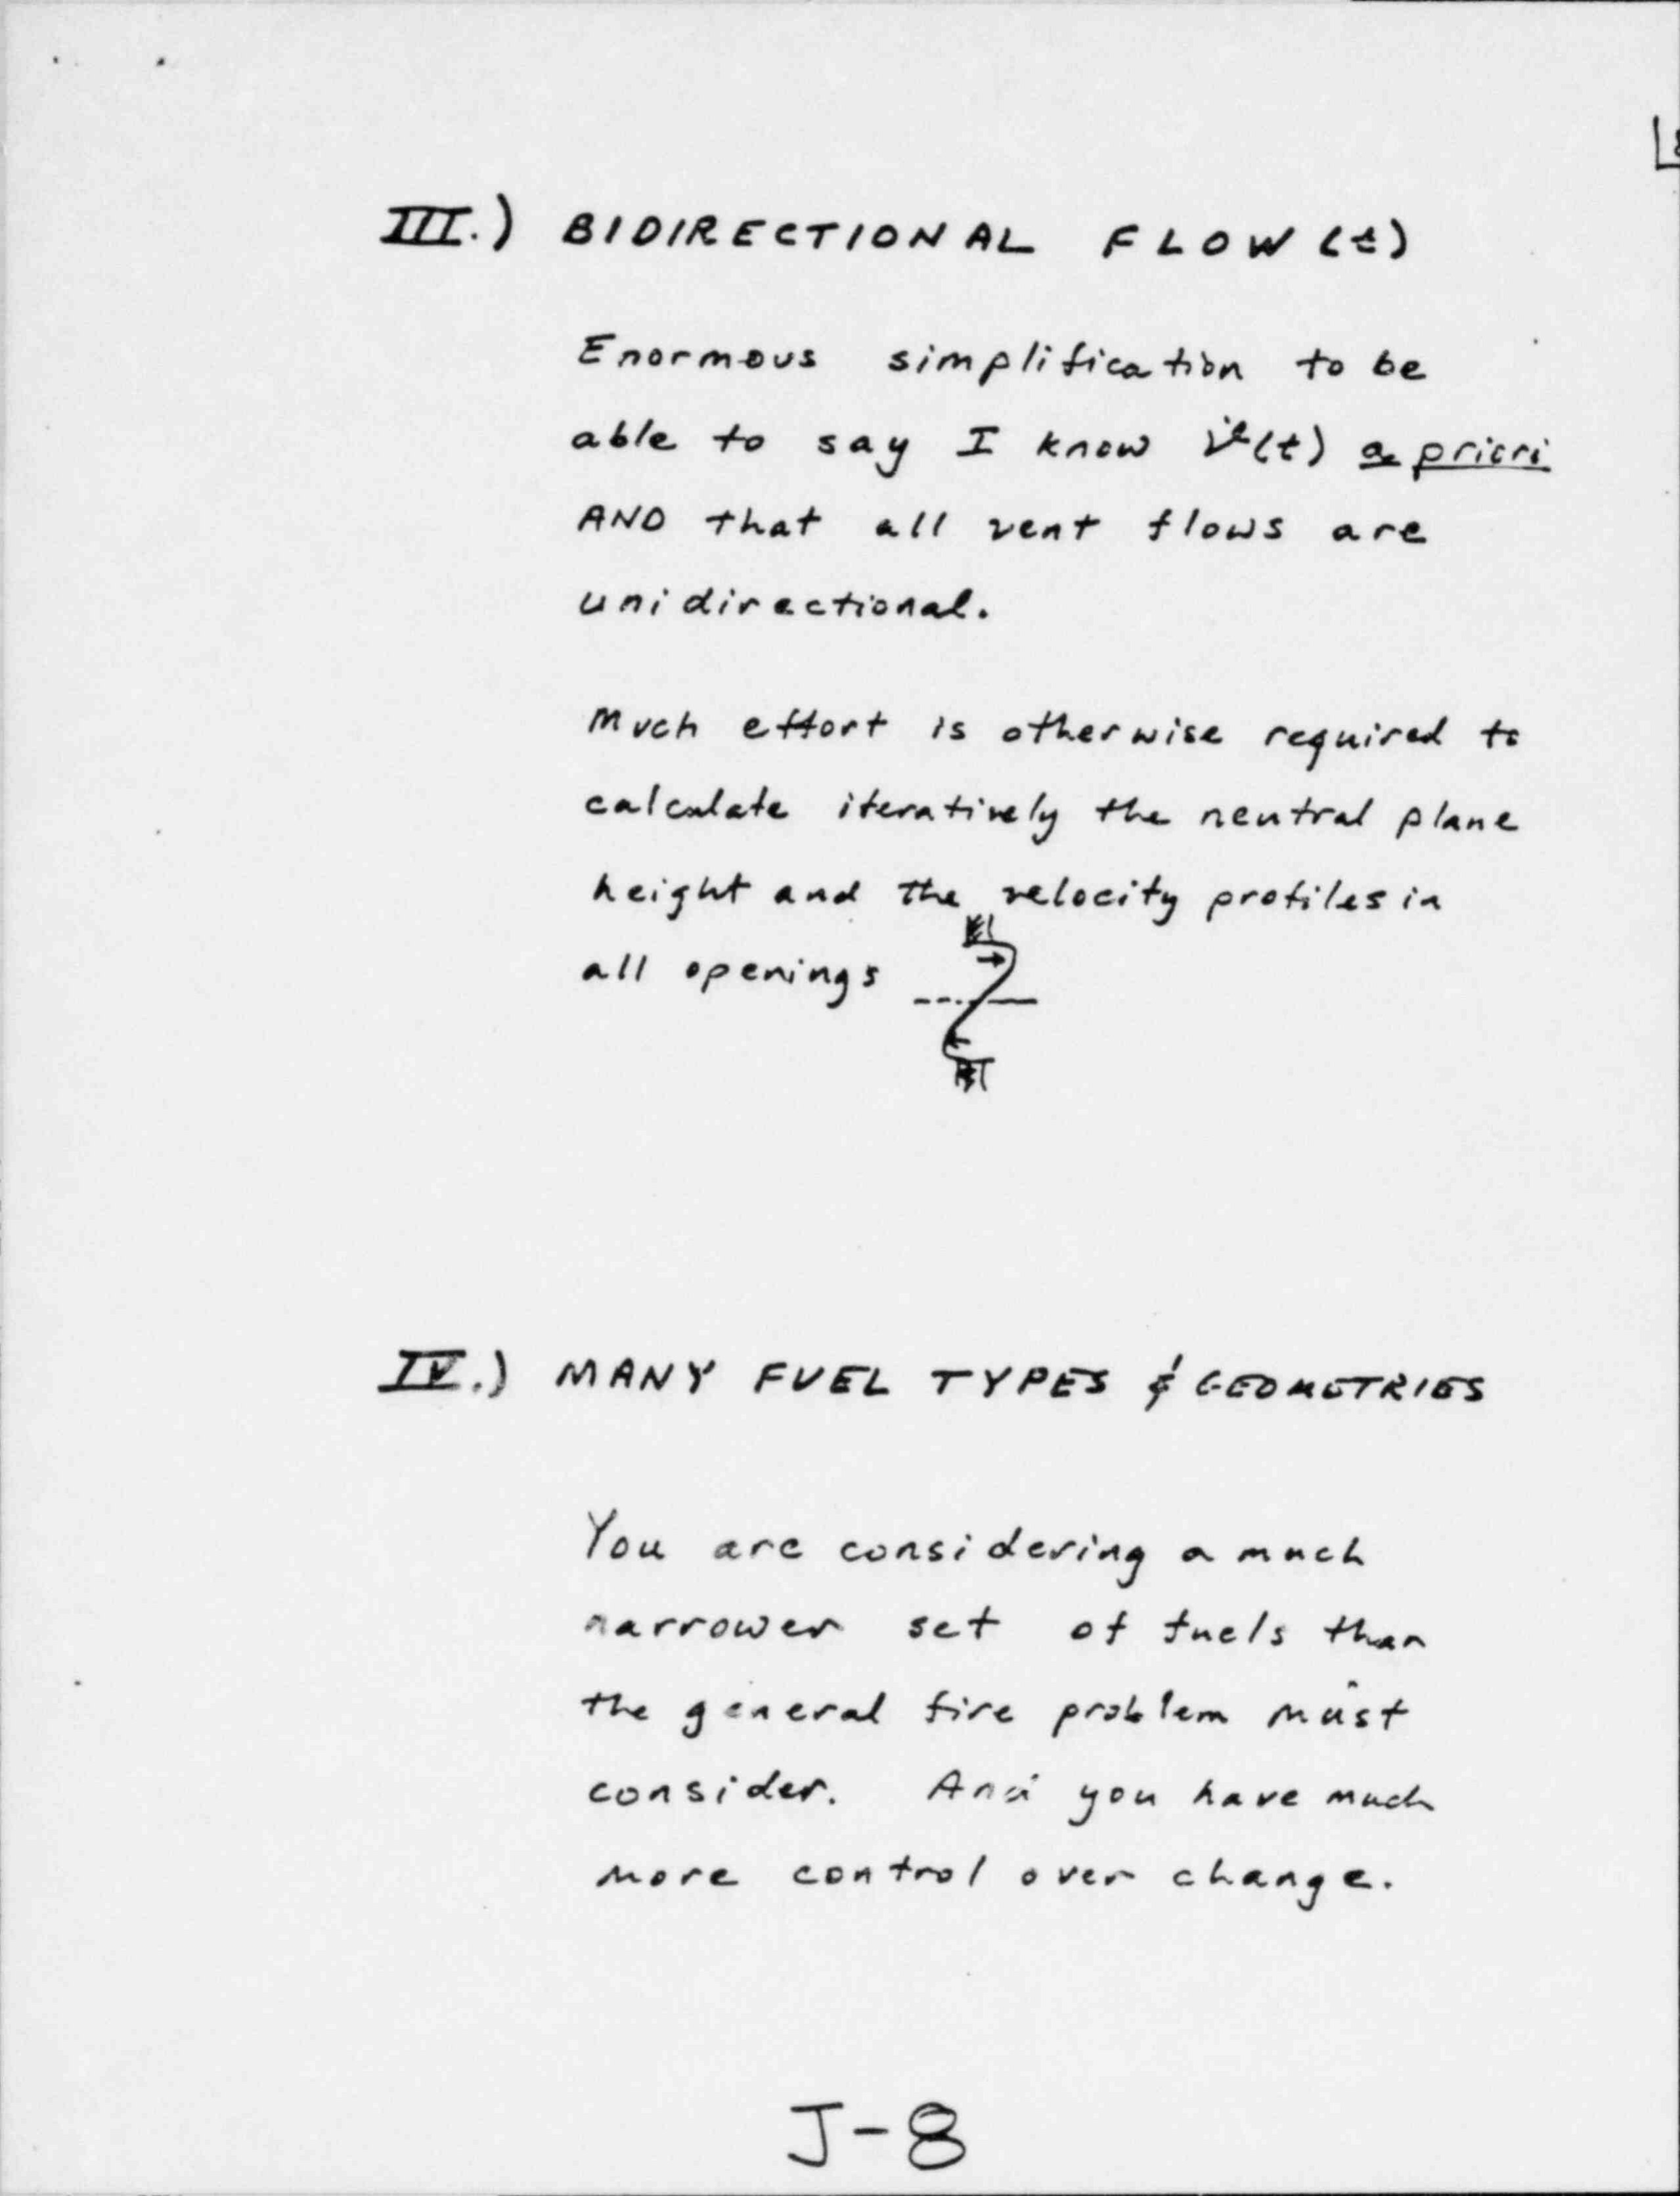 III.) BIDIRECTIONAL FLOW (t)
Enormous simplification to be
able to say I know (t) a priori
AND that all vent flows are
unidirectional.
Much effort is otherwise required to
calculate iteratively the neutral plane
height and the velocity profiles in
all openings
IV.) MANY FUEL TYPES & GEOMETRIES
You are considering a much
narrower set of fuels than
the general fire problem must
consider. And you have much
more control over change.
J-8